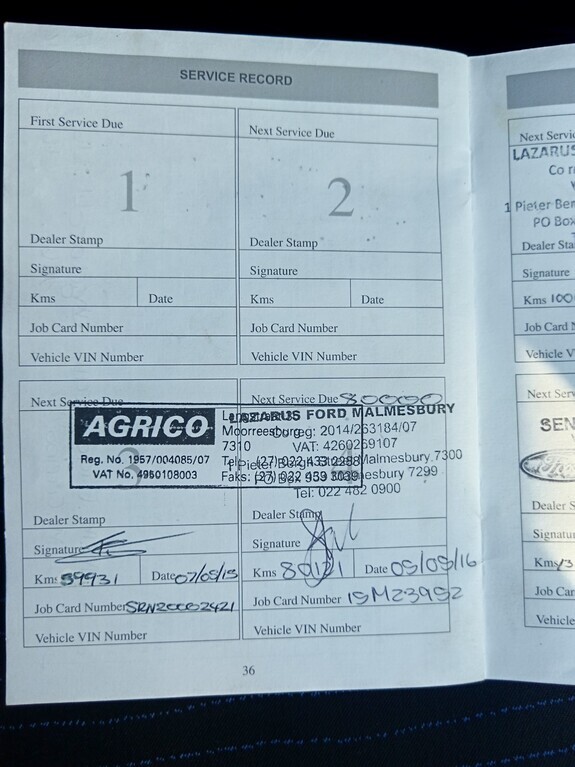 SERVICE RECORD
First Service Due
1
Dealer Stamp
Signature
Kms Date
Job Card Number
Vehicle VIN Number
Next Service Due
2
Dealer Stamp
Signature
Kms Date
Job Card Number
Vehicle VIN Number
Next Service Due
3
AGRICO
Reg. No. 1957/004085/07
VAT No. 4960108003
Moorreesburg
7310
Dealer Stamp
Signature
Kms 59931 Date 07/05/15
Job Card Number SRN20002421
Vehicle VIN Number
Next Service Due 80000
LAZARUS FORD MALMESBURY
Co reg: 2014/263184/07
VAT: 4260269107
Malmesbury 7300
Malmesbury 7299
Tel: 022 482 0900
Dealer Stamp
Signature
Kms 80121 Date 05/09/16
Job Card Number
Vehicle VIN Number
36
LAZARUS
Co r
1 Pieter Ber
PO Box
Dealer Sta
Signature
Kms 100
Job Card
Vehicle V
SEN
Ford
Dealer S
Signatu
Job Car
Vehicle